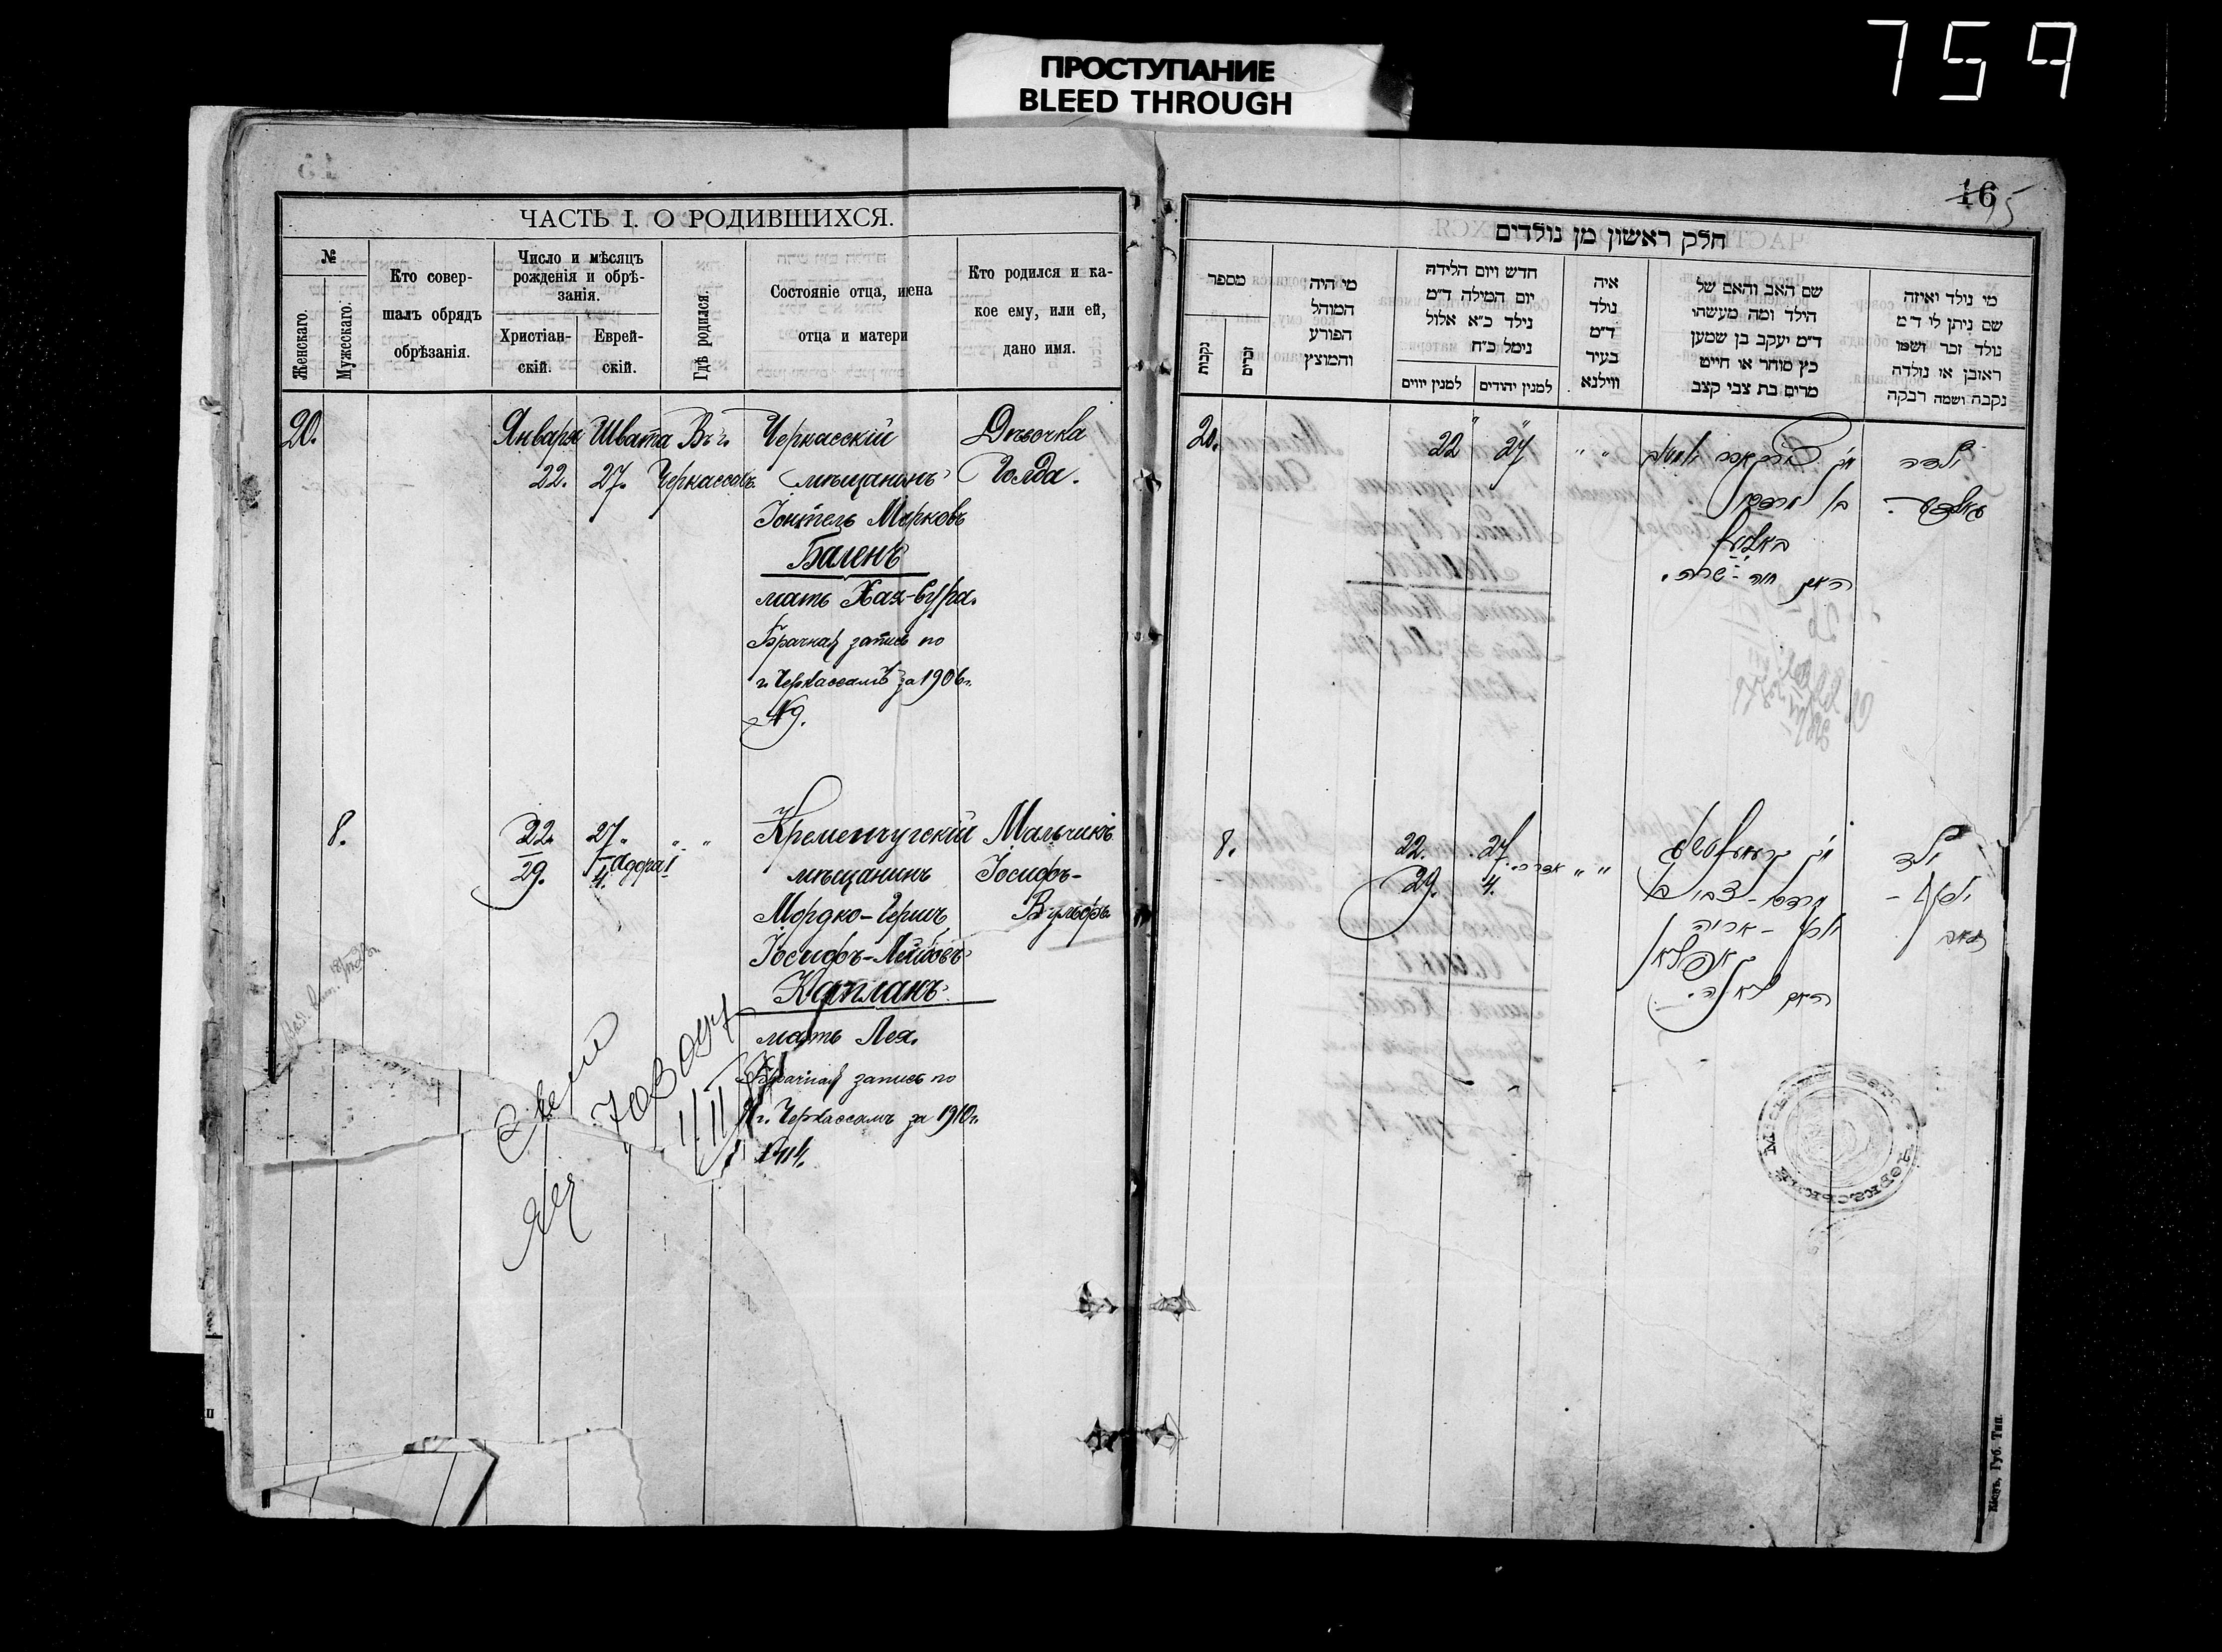 759
ПРОСТУПАНИЕ
BLEED THROUGH
ЧАСТЬ I. О РОДИВШИХСЯ.
№
Женскаго.
Мужескаго.
Кто совер-
шалъ обрядъ
обрѣзанія.
Число и мѣсяцъ
рожденія и обрѣ-
занія.
Христіан-
скій.
Еврей-
скій.
Гдѣ родился.
Состояніе отца, имена
отца и матери
Кто родился и ка-
кое ему, или ей,
дано имя.
20.
Января
22.
Швата
27.
Въ г.
Черкассахъ
Черкасскій
мѣщанинъ
Іонтель Марковъ
Баленъ
мать Хая-Сура.
Брачная запись по
г. Черкассамъ за 1906 г.
№ 9.
Дѣвочка
Голда.
8.
22.
29.
27.
4. Адара I
" "
Кременчугскій
мѣщанинъ
Мордко-Гершъ
Іосифъ-Лейбовъ
Капланъ
мать Лея.
Брачная запись по
г. Черкассамъ за 1910 г.
Мальчикъ
Іосифъ-
Вульфъ
16
15
חלק ראשון מן נולדים
מספר
נקבות
זכרים
מי היה
המוהל
הפורע
והמוצץ
חדש ויום הלידה
יום המילה ד"מ
נילד כ"א אלול
נימל כ"ח
למנין יווים
למנין יהודים
איה
נולד
ד"מ
בעיר
ווילנא
שם האב והאם של
הילד ומה מעשהו
ד"מ יעקב בן שמען
כץ סוחר או חייט
מרים בת צבי קצב
מי נולד ואיזה
שם ניתן לו ד"מ
נולד זכר ושמו
ראובן או נולדה
נקבה ושמה רבקה
20.
22
27
" "
האם חיה-שרה.
ילדה
גאלדע.
8.
22.
29.
27.
4.
" "
מרדכי-צבי בן
יוסף-אריה
קאפלאן
האם לאה.
ילד
יוסף-
זאב
Кіевъ, Губ. Тип.